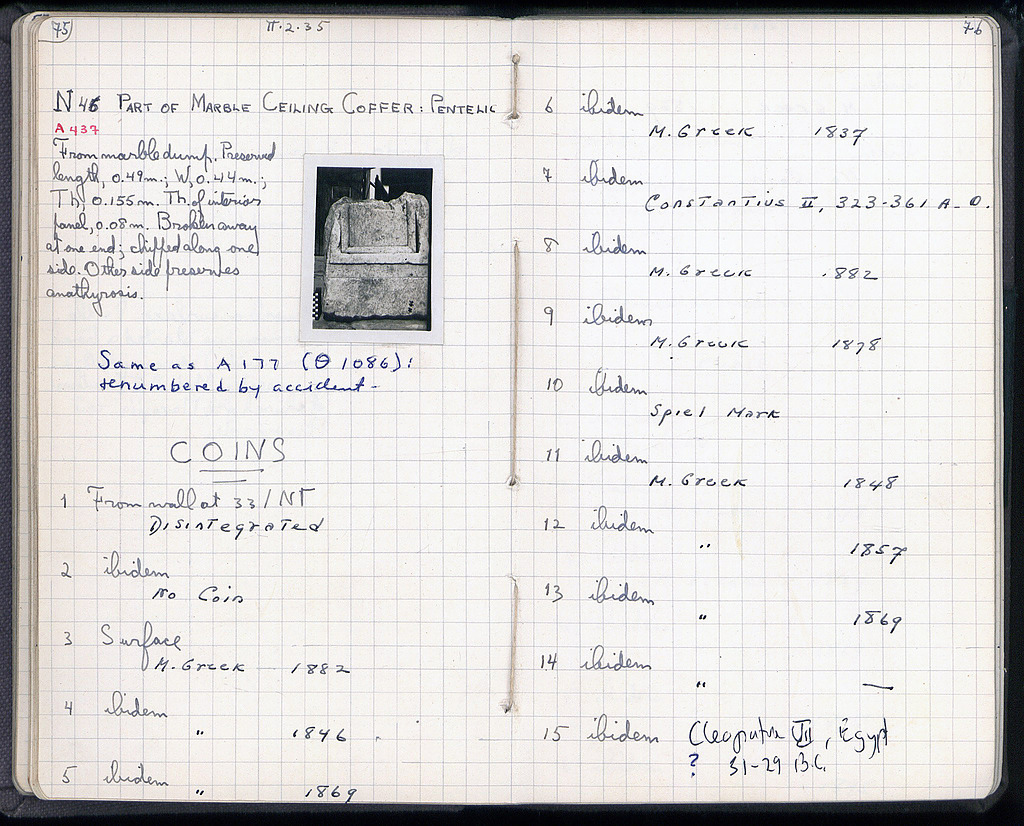 75
П.2.35
N 46 PART OF MARBLE CEILING COFFER: PENTELIC
A 437
From marble dump. Preserved
length, 0.49m.; W, 0.44m.;
Th, 0.155m. Th. of interior
panel, 0.08m. Broken away
at one end; chipped along one
side. Other side preserves
anathyrosis.
Same as A 177 (Θ 1086):
renumbered by accident –
COINS
1 From wall at 33/ΝΓ
Disintegrated
2 ibidem
No Coin
3 Surface
M. Greek 1882
4 ibidem
" 1846
5 ibidem
" 1869
76
6 ibidem
M. Greek 1837
7 ibidem
Constantius II, 323-361 A.D.
8 ibidem
M. Greek 1882
9 ibidem
M. Greek 1878
10 ibidem
Spiel Mark
11 ibidem
M. Greek 1848
12 ibidem
" 1857
13 ibidem
" 1869
14 ibidem
" —
15 ibidem Cleopatra VII, Egypt
? 31-29 B.C.